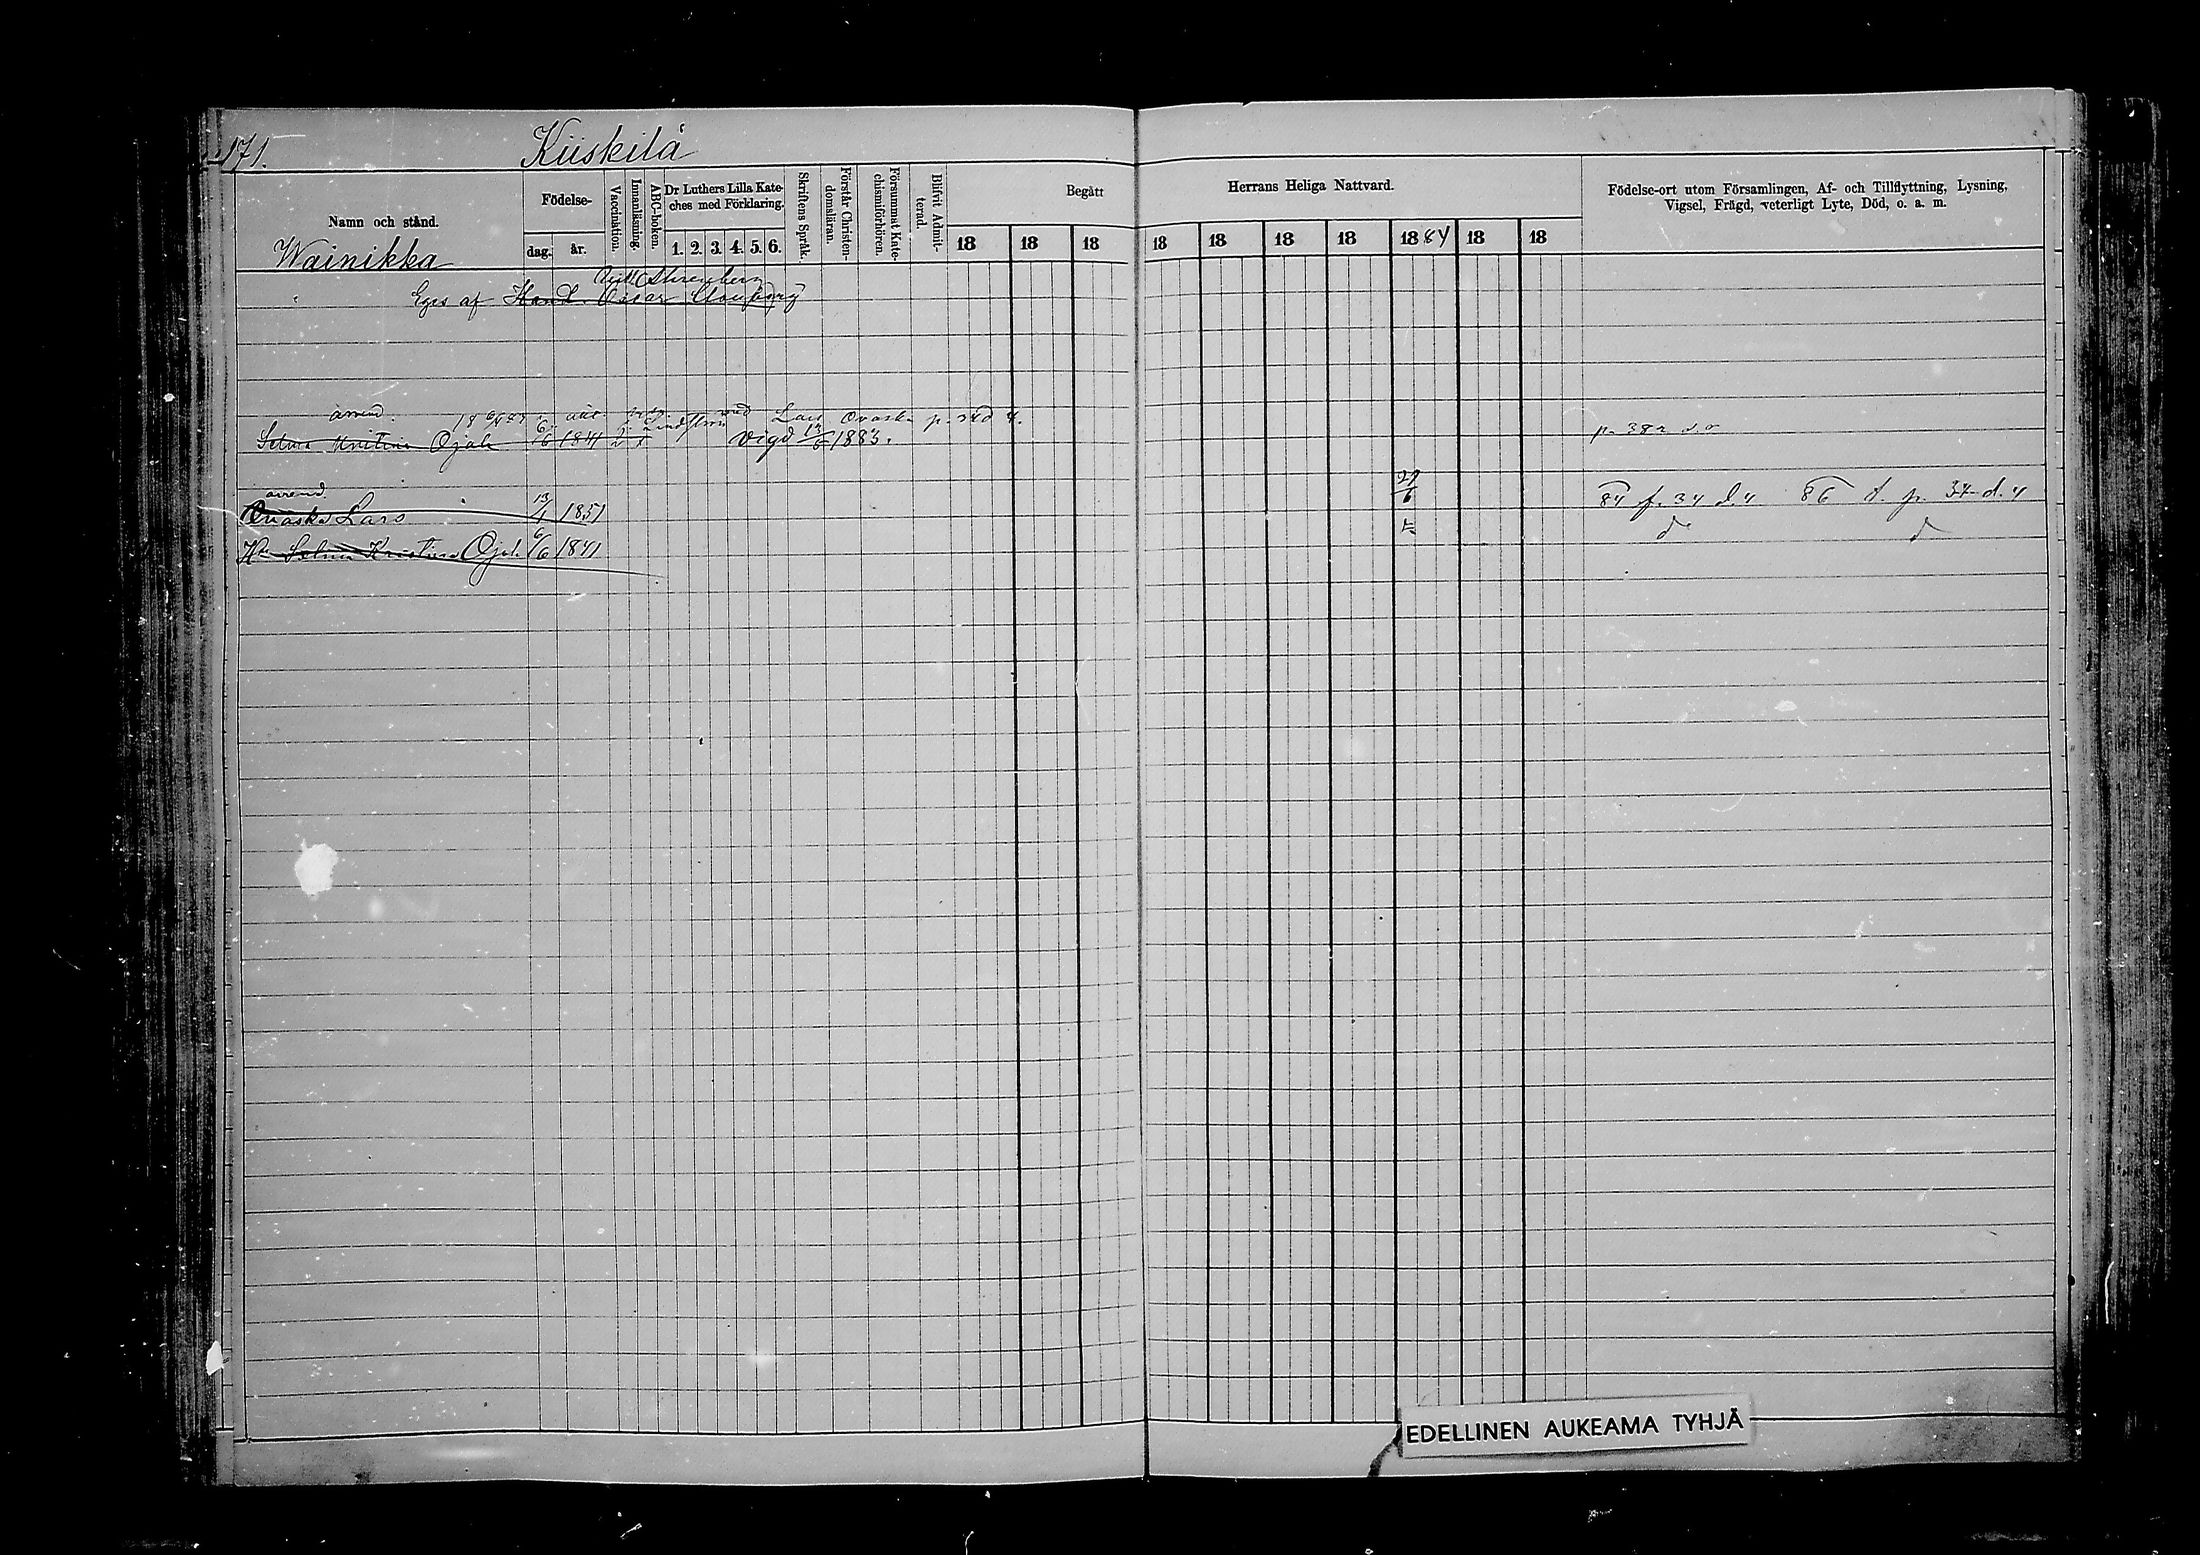 171.
Kiiskilä
Namn och stånd.
Födelse-
dag.
år.
Vaccination.
Innanläsning.
ABC-boken.
Dr Luthers Lilla Kate-
ches med Förklaring.
1. 2. 3. 4. 5. 6.
Skriftens Språk.
Förstår Christen-
domsläran.
Försummat Kate-
chismiförhören.
Blifvit Admit-
terad.
Begått
Herrans Heliga Nattvard.
18 18 18 18 18 18 18 1884 18 18
Födelse-ort utom Församlingen, Af- och Tillflyttning, Lysning,
Vigsel, Frägd, veterligt Lyte, Död, o. a. m.
Wainikka
Eges af Hand. Oscar
arrend.
Lars Ovaska p. 34 d 4.
Selma Kristina Ojala 6/6 1841 vigd 13/6 1883.
arrend.
Ovaska Lars 13/1 1851 29/6 84 f. 34 d. 4 86 t. p. 34 d. 4
H. Selma Kristina Ojal. 6/6 1841 = d d
EDELLINEN AUKEAMA TYHJÄ